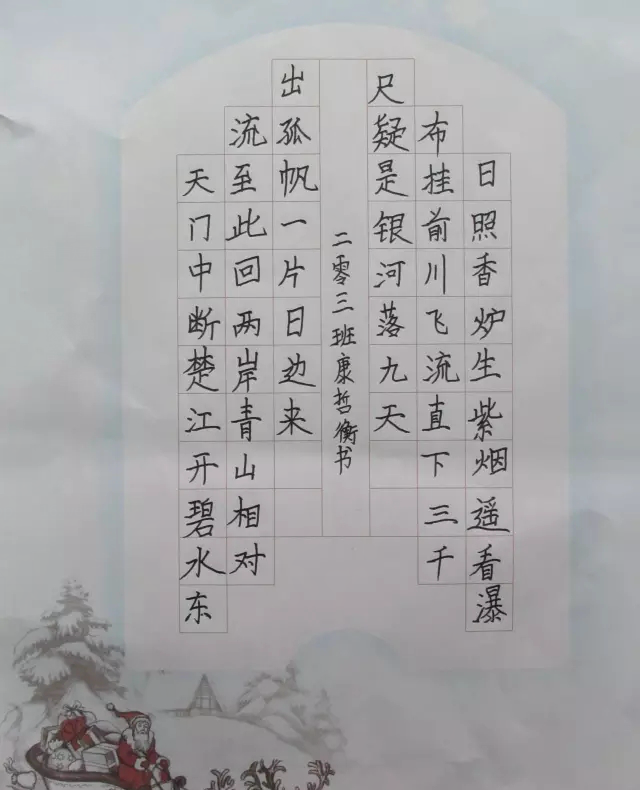 日照香炉生紫烟遥看瀑
布挂前川飞流直下三千
尺疑是银河落九天
天门中断楚江开碧水东
流至此回两岸青山相对
出孤帆一片日边来
二零三班康哲衡书